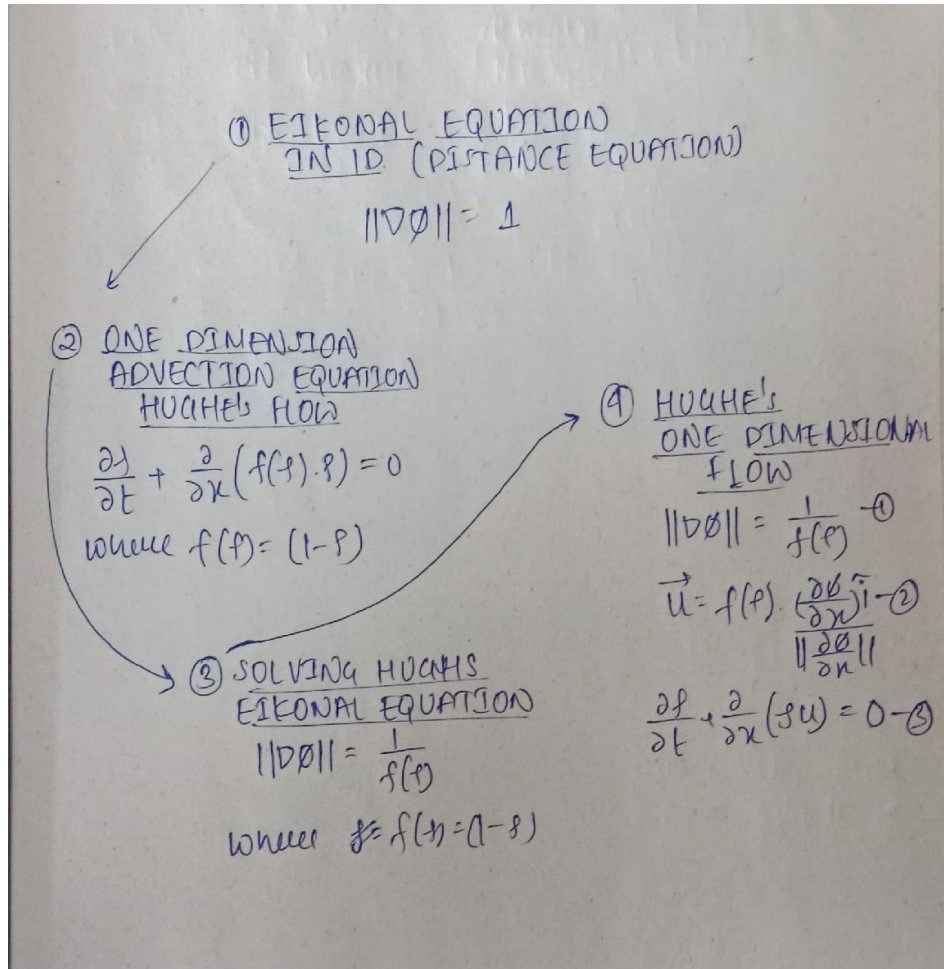 ① EIKONAL EQUATION
IN 1D (DISTANCE EQUATION)
||∇Ø|| = 1
② ONE DIMENSION
ADVECTION EQUATION
HUGHE's FLOW
∂ρ/∂t + ∂/∂x (f(ρ).ρ) = 0
where f(ρ) = (1-ρ)
③ SOLVING HUGHS
EIKONAL EQUATION
||∇Ø|| = 1/f(ρ)
where f(ρ) = (1-ρ)
④ HUGHE's
ONE DIMENSIONAL
FLOW
||∇Ø|| = 1/f(ρ) -①
u⃗ = f(ρ). (∂Ø/∂x)î / ||∂Ø/∂x|| -②
∂ρ/∂t + ∂/∂x (ρu) = 0 -③